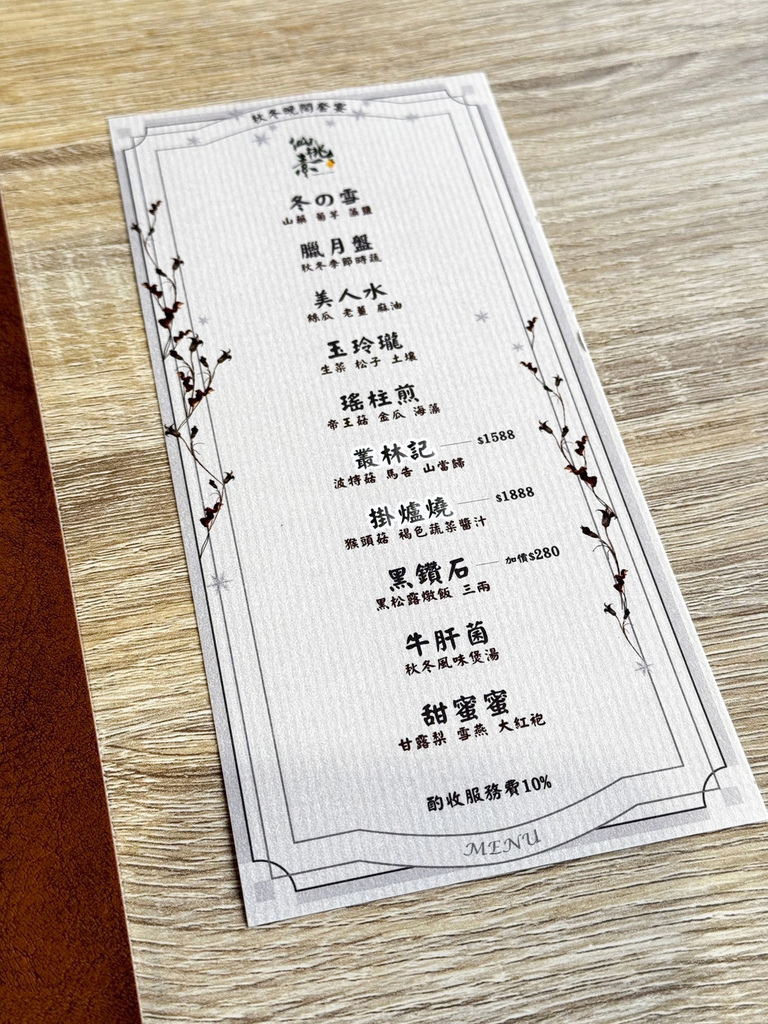 秋冬晚間套宴
仙桃素
冬の雪
山藥 菊芋 藻鹽
臘月盤
秋冬季節時蔬
美人水
絲瓜 老薑 麻油
玉玲瓏
生菜 松子 土壤
瑤柱煎
帝王菇 金瓜 海藻
叢林記 $1588
波特菇 馬告 山當歸
掛爐燒 $1888
猴頭菇 褐色蔬菜醬汁
黑鑽石 加價$280
黑松露燉飯 三兩
牛肝菌
秋冬風味煲湯
甜蜜蜜
甘露梨 雪燕 大紅袍
酌收服務費10%
MENU